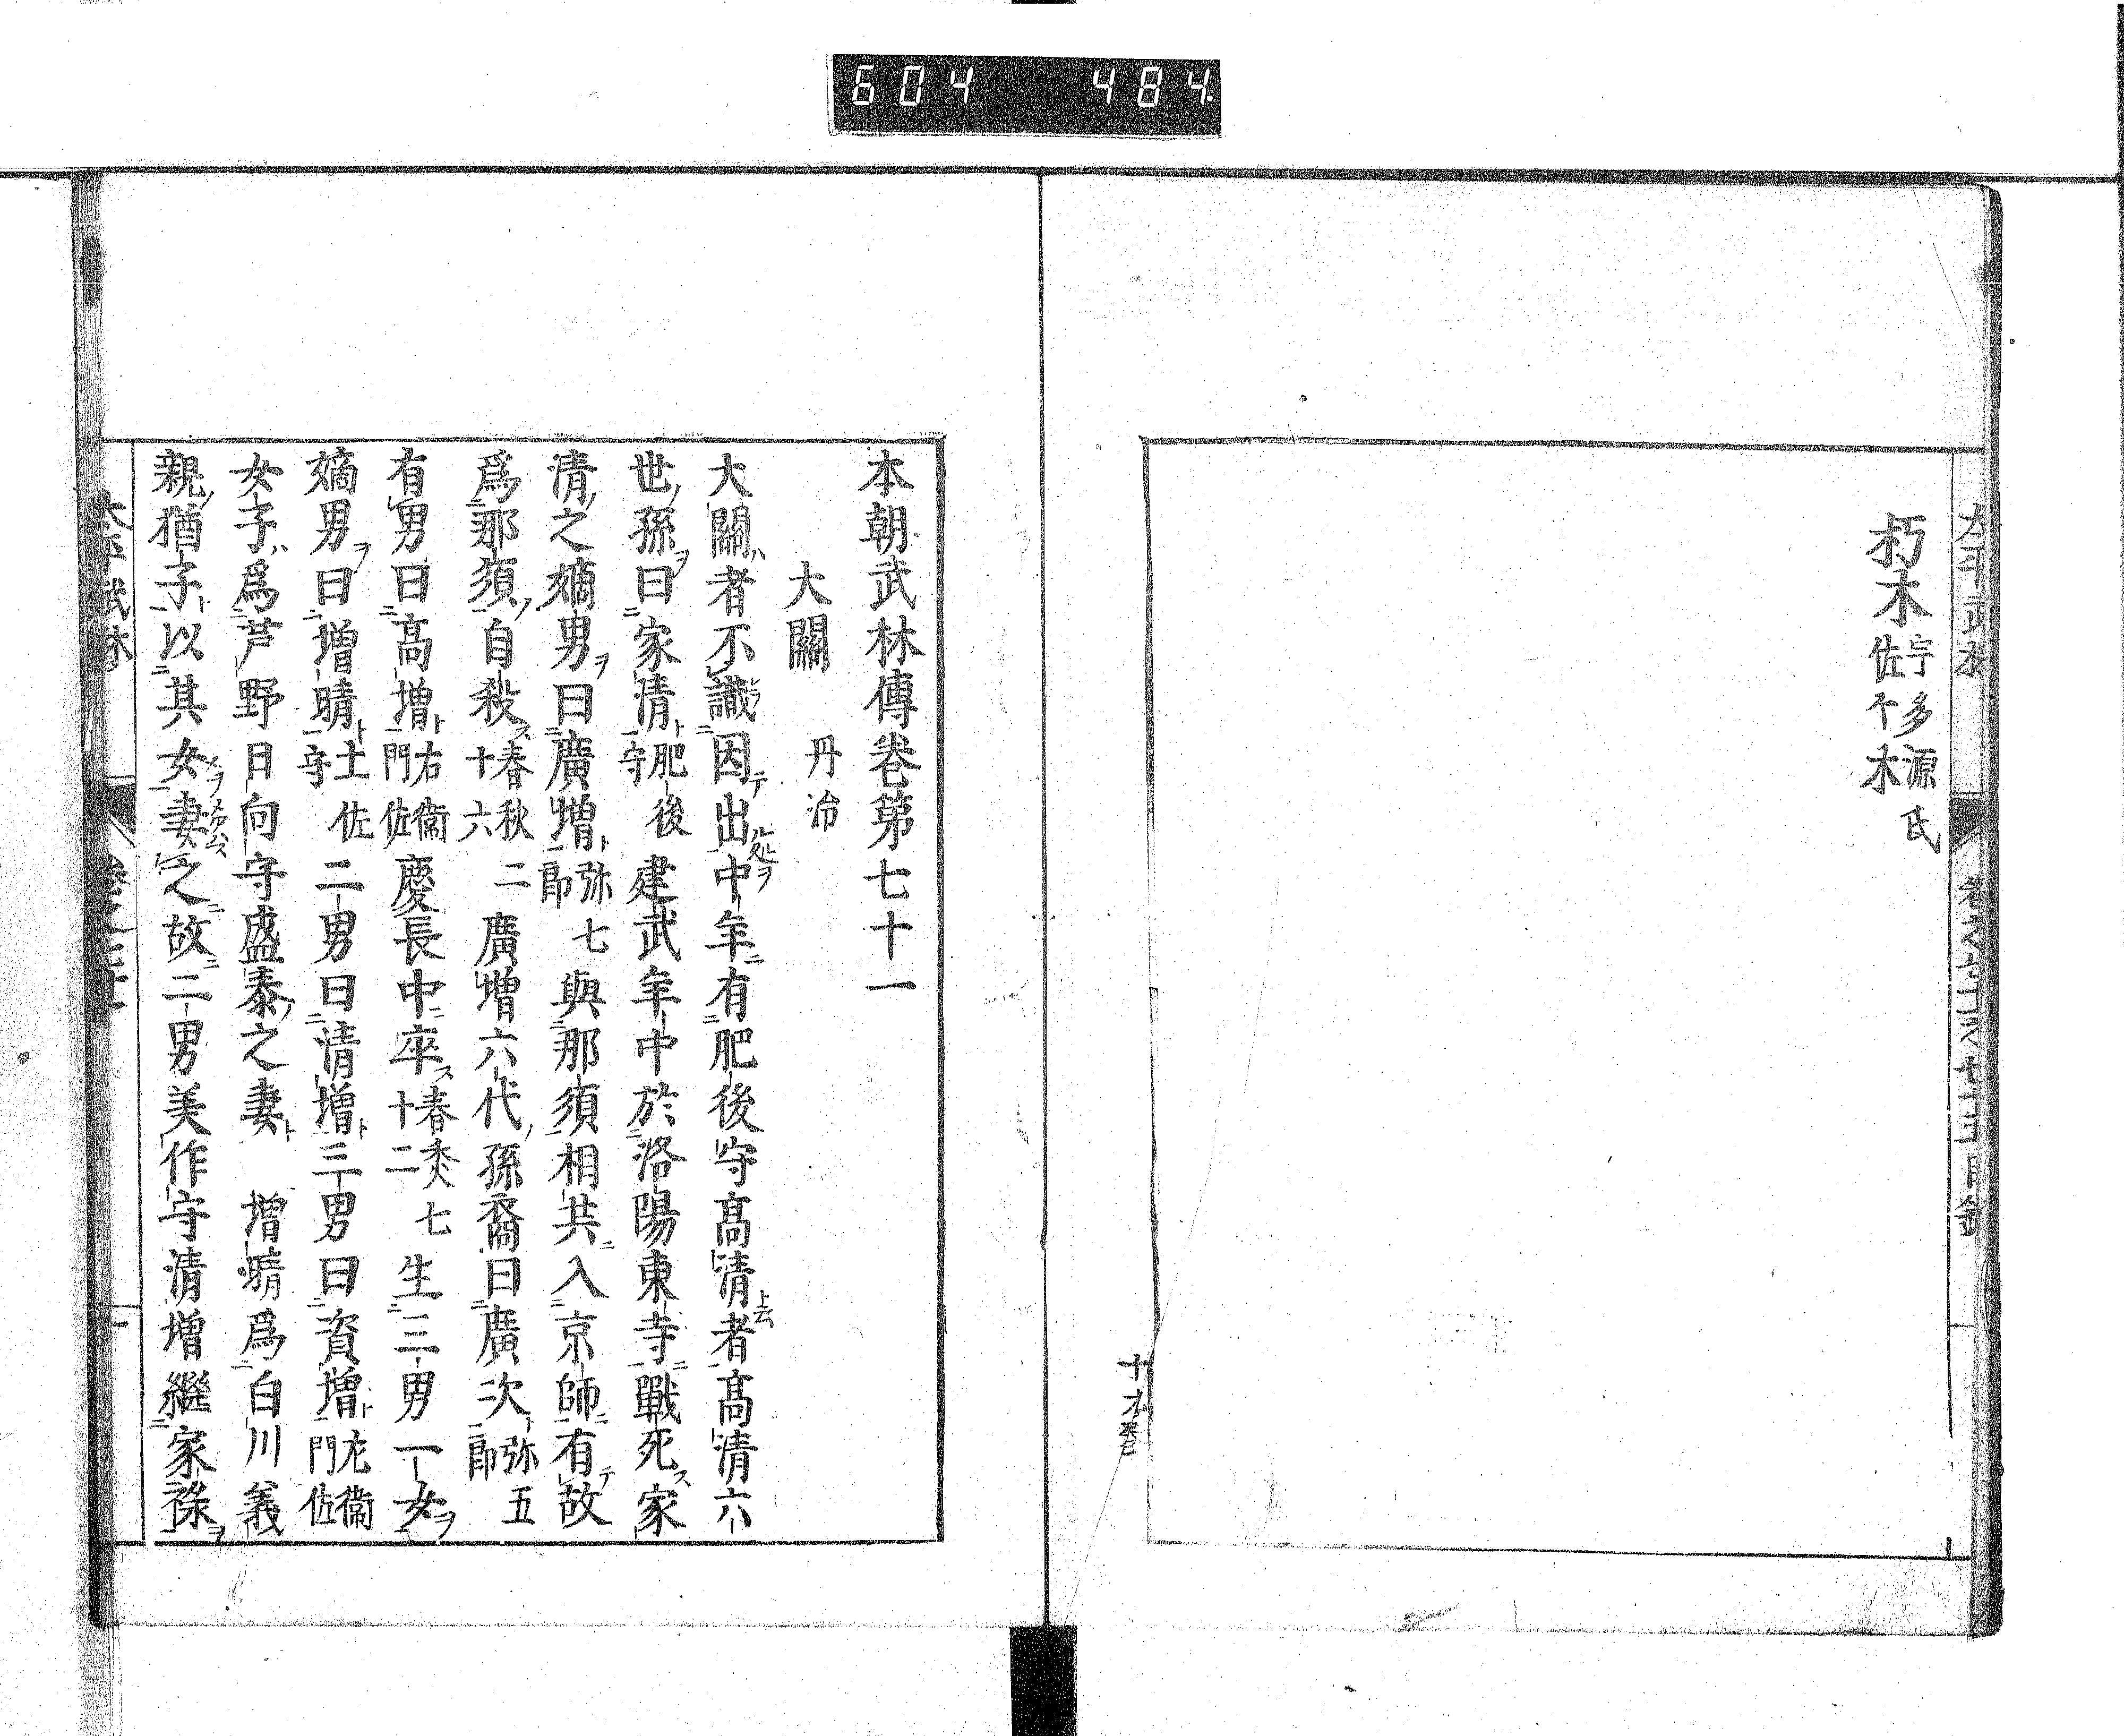 604 484
朽木 宇多源氏 佐々木
本朝武林傳巻第七十一
大關 丹治
大關者不識因出中年有肥後守髙清者髙清六
世孫曰家清肥後守建武年中於洛陽東寺戰死家
清之嫡男曰廣增弥七郎與那須相共入京師有故
爲那須自殺春秋二十六廣增六代孫裔曰廣次弥五郎
有男曰髙增右衞門佐慶長中卒春秋七十二生三男一女
嫡男曰增晴土佐守二男曰清增三男曰資增左衞門佐
女子爲芦野日向守盛泰之妻 增晴爲白川義
親猶子以其女妻之故二男美作守清增繼家祿